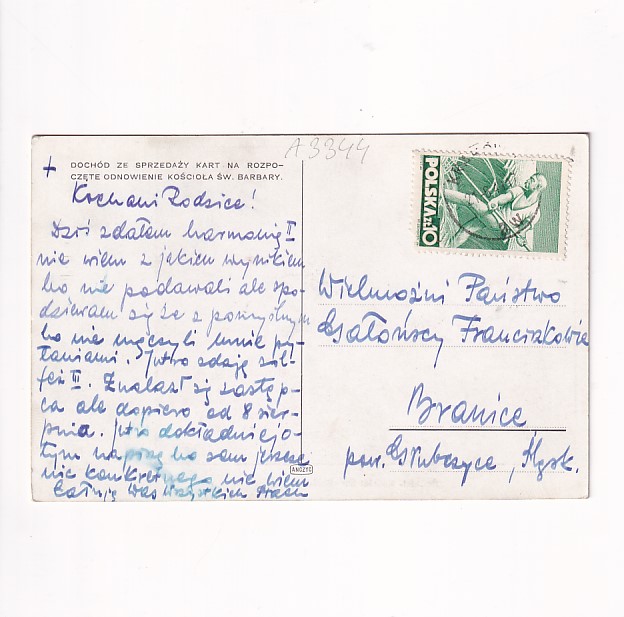 A3344
DOCHÓD ZE SPRZEDAŻY KART NA ROZPO-
CZĘTE ODNOWIENIE KOŚCIOŁA ŚW. BARBARY.
+
Kochani Rodzice!
Dziś zdałem harmonię II
nie wiem z jakiem wynikiem
bo nie podawali ale spo-
dziewam się że z pomyślnym
bo nie męczyli mnie py-
taniami. Jutro zdaję sol-
feż III. Znalazł się zastęp-
ca ale dopiero od 8 sier-
pnia. Jutro dokładniej o-
tym napiszę bo sam jeszcze
nic konkretnego nie wiem
Całuję Was Wszystkich
POLSKA ZŁ 10
Wielmożni Państwo
Franciszkowie
Branice
pow. Głubczyce, Śląsk.
ANCZYC